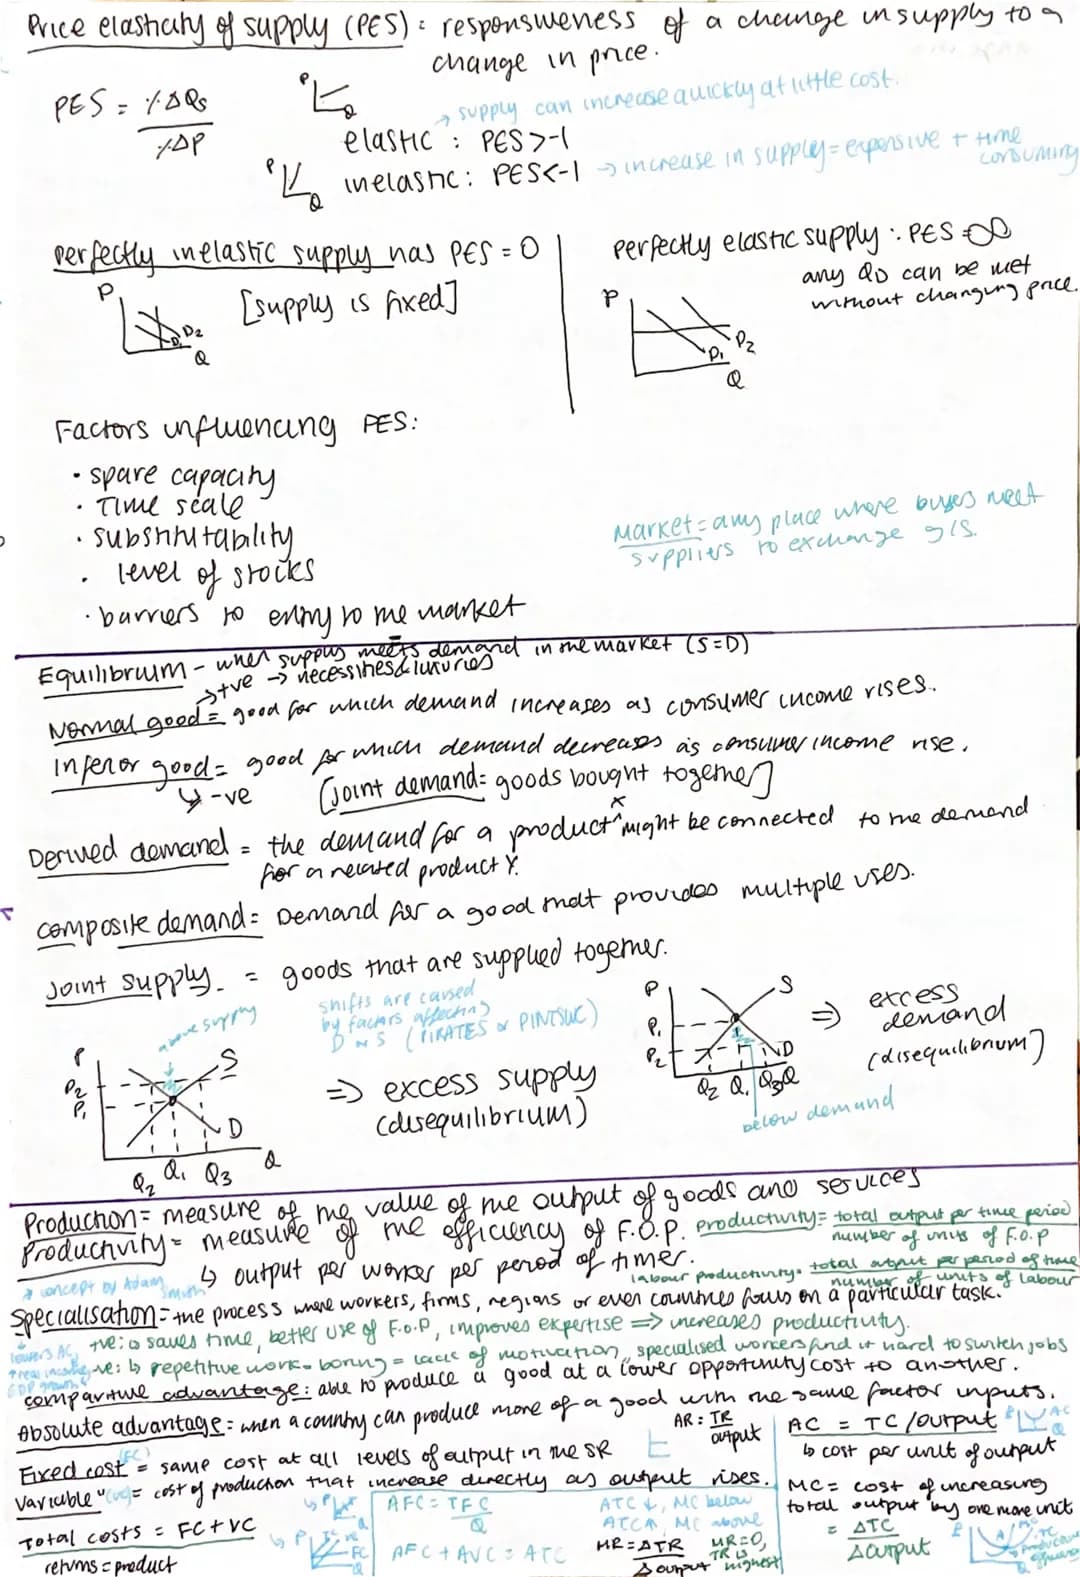 Price elasticity of supply (PES) : responsiveness of a change in supply to a
change in price.
PES = %ΔQs
%ΔP
P
Q
→ supply can increase quickly at little cost.
elastic : PES>-1
P
Q
inelastic: PES<-1 → increase in supply = expensive + time
consuming
perfectly inelastic supply has PES = 0
P
[supply is fixed]
D1 D2
Q
perfectly elastic supply : PES = ∞
any QD can be met
without changing price.
P
D1 D2
Q
Factors influencing PES:
• spare capacity
• Time scale
• substitutability
• level of stocks
• barriers to entry to the market
Market = any place where buyers meet
suppliers to exchange g/s.
Equilibrium - when supply meets demand in the market (S=D)
→ +ve → necessities & luxuries
Normal good = good for which demand increases as consumer income rises.
Inferior good = good for which demand decreases as consumer income rise.
↳ -ve [joint demand = goods bought together]
Derived demand = the demand for a product x might be connected to the demand
for a related product Y.
composite demand = Demand for a good that provides multiple uses.
Joint supply = goods that are supplied together.
shifts are caused
by factors affecting
D n S (PIRATES or PINTSWC)
above supply
P
P2
P1
S
D
Q2 Q1 Q3 Q
⇒ excess supply
(disequilibrium)
P
P1
P2
S
D
Q2 Q1 Q3 Q
below demand
⇒ excess
demand
(disequilibrium)
Production = measure of the value of the output of goods and services
Productivity = measure of the efficiency of F.O.P. productivity = total output per time period
number of units of F.O.P
↳ output per worker per period of timer.
labour productivity = total output per period of time
number of units of labour
concept by Adam Smith
Specialisation = the process where workers, firms, regions or even countries focus on a particular task.
+ve: ↳ saves time, better use of F.O.P, improves expertise ⇒ increases productivity.
lowers AC,
↑ real income,
GDP growth
-ve: ↳ repetitive work = boring = lack of motivation, specialised workers find it hard to switch jobs
comparative advantage : able to produce a good at a lower opportunity cost to another.
Absolute advantage : when a country can produce more of a good with the same factor inputs.
Fixed cost (FC) = same cost at all levels of output in the SR
AR = TR
output
Variable " (VC) = cost of production that increase directly as output rises.
Total costs = FC + VC
returns = product
P
FC
Q
AFC = TFC
Q
AFC + AVC = ATC
ATC ↓, MC below
ATC ↑, MC above
MR = ΔTR
Δoutput
MR=0,
TR is
highest
AC = TC / output
AC
Q
↳ cost per unit of output
MC = cost of increasing
total output by one more unit
= ΔTC
Δoutput